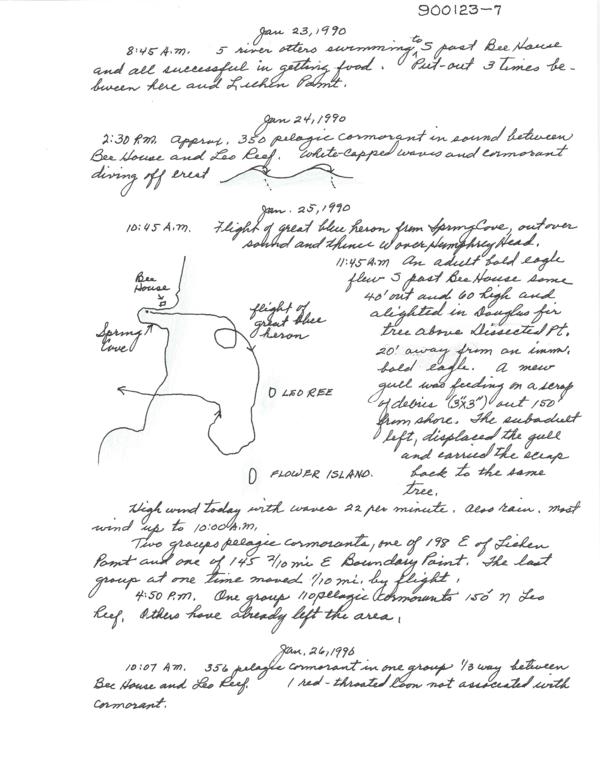 900123-7
Jan 23, 1990
8:45 A.M. 5 river otters swimming to S past Bee House
and all successful in getting food. Put-out 3 times be-
tween here and Lichen Point.
Jan 24, 1990
2:30 P.M. Approx. 350 pelagic cormorant in sound between
Bee House and Leo Reef. White-capped waves and cormorant
diving off crest
Jan. 25, 1990
10:45 A.M. Flight of great blue heron from Spring Cove, out over
sound and thence W over Humphrey Head.
11:45 A.M An adult bald eagle
flew S past Bee House some
40' out and 60 high and
alighted in Douglas fir
tree above Dissected Pt.
20' away from an imm.
bald eagle. A mew
gull was feeding on a scrap
of debris (3"x3") out 150'
from shore. The subadult
left, displaced the gull
and carried the scrap
back to the same
tree.
Bee
House
Spring
Cove
flight of
great blue
heron
LEO REE
FLOWER ISLAND.
High wind today with waves 22 per minute. Also rain. Most
wind up to 10:00 A.M.
Two groups pelagic cormorants, one of 198 E of Lichen
Point and one of 145 2/10 mi E Boundary Point. The last
group at one time moved 1/10 mi. by flight.
4:50 P.M. One group 110 pelagic cormorants 150' N Leo
Reef. Others have already left the area.
Jan. 26, 1990
10:07 AM. 356 pelagic cormorant in one group 1/3 way between
Bee House and Leo Reef. 1 red-throated loon not associated with
cormorant.